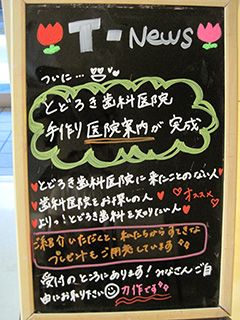 T-News
ついに…
とどろき歯科医院
手作り医院案内が完成
とどろき歯科医院に来たことのない人
歯科医院をお探しの人 オススメ
よりっ!とどろき歯科を知りたい人
ご紹介いただくと、私たちからすてきな
プレゼントもご用意しています
受付のところにあります!みなさんご自
由にお取り下さい 力作です